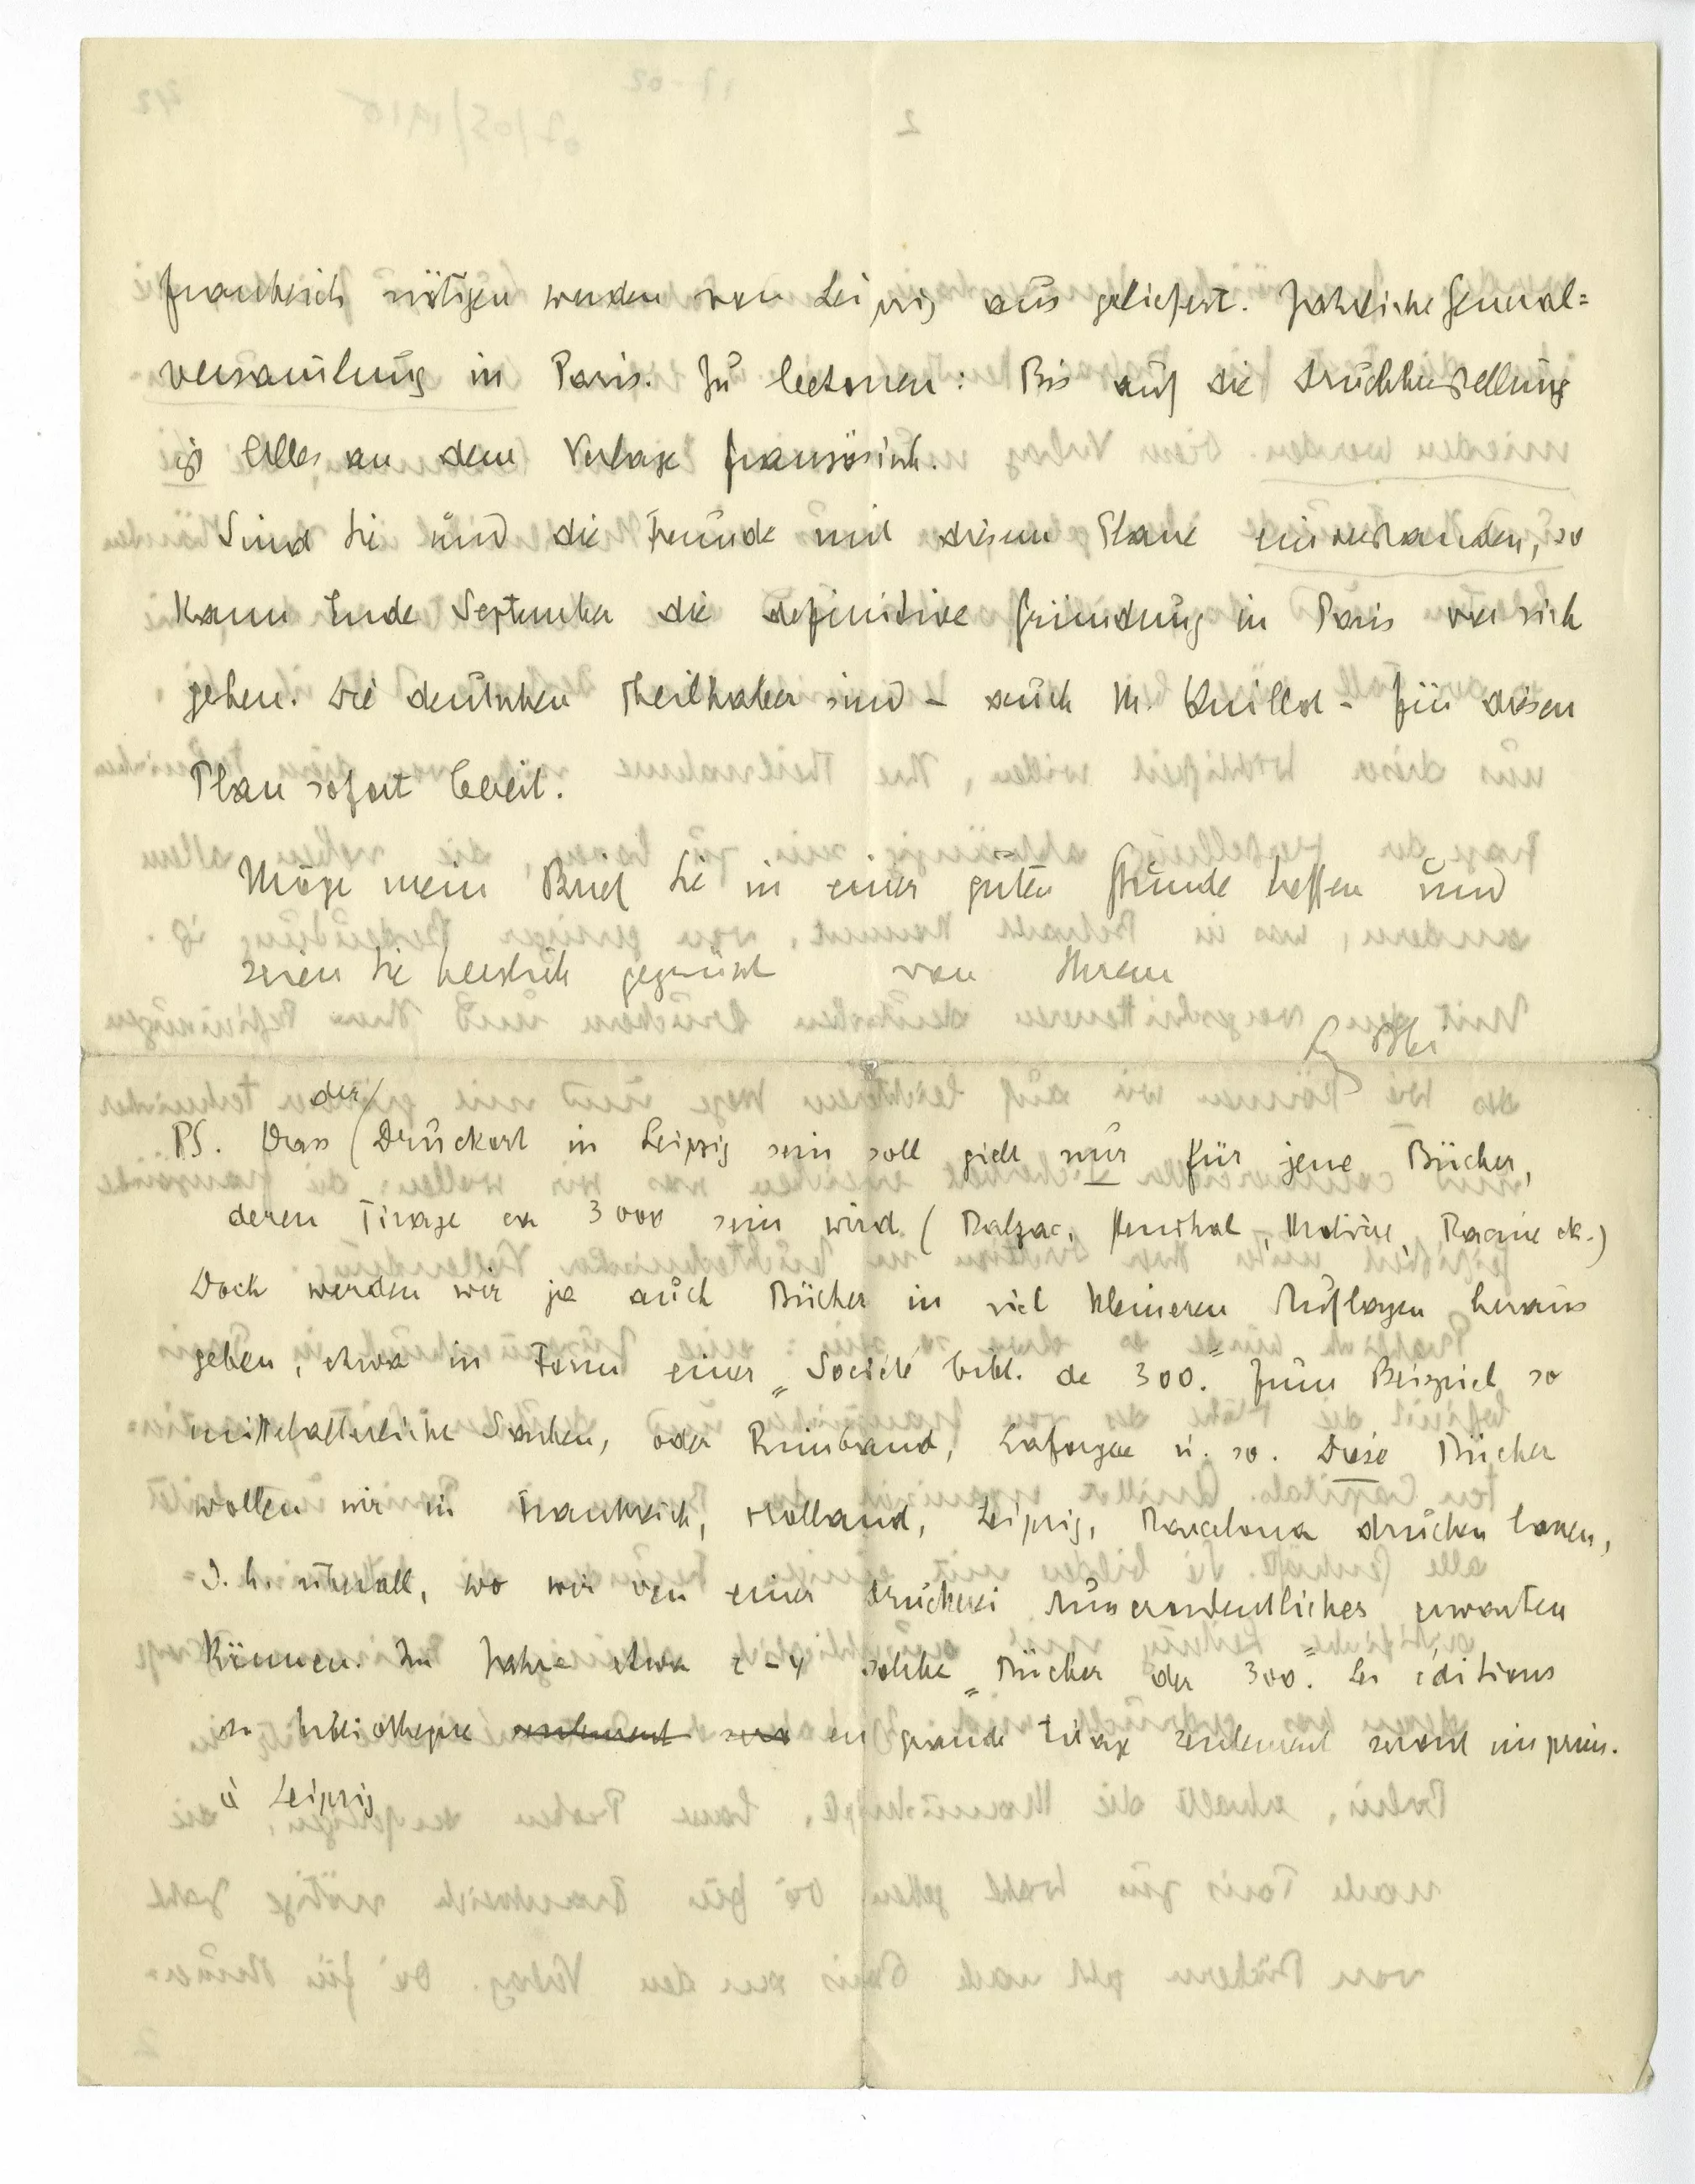 Frankreich nötigen werden von Leipzig aus geliefert. Jährliche General=
versamlung in Paris. Zu betonen: Bis auf die Druckherstellung
ist Alles an dem Verlage französisch.
Sind Sie und die Freunde mit diesem Plane einverstanden, so
kann Ende September die definitive Gründung in Paris vor sich
gehen. Die deutschen Theilhaber sind – auch M. Quillot – für diesen
Plan sofort bereit.
Möge mein Brief Sie in einer guten Stunde treffen und
seien Sie herzlich gegrüsst von Ihrem
der/
PS. Dass (Druckort in Leipzig sein soll gielt nur für jene Bücher,
deren Tirage ca 3000 sein wird (Balzac, Stendhal, Molière, Racine etc.)
Doch werden wir ja auch Bücher in viel kleineren Auflagen heraus
geben, etwa in Form einer „Société bibl. de 300." Zum Beispiel so
mittelalterliche Sachen, oder Rimbaud, Laforgue u. so. Diese Bücher
wollen wir in Frankreich, Holland, Leipzig, Barcelona drucken lassen,
d. h. überall, wo wir von einer Druckerei Ausserordentliches erwarten
können. Im Jahre etwa 2–4 solche „Bücher der 300". Les éditions
de bibliotheque seulement sero en grande tirage seulement seront imprim.
à Leipzig